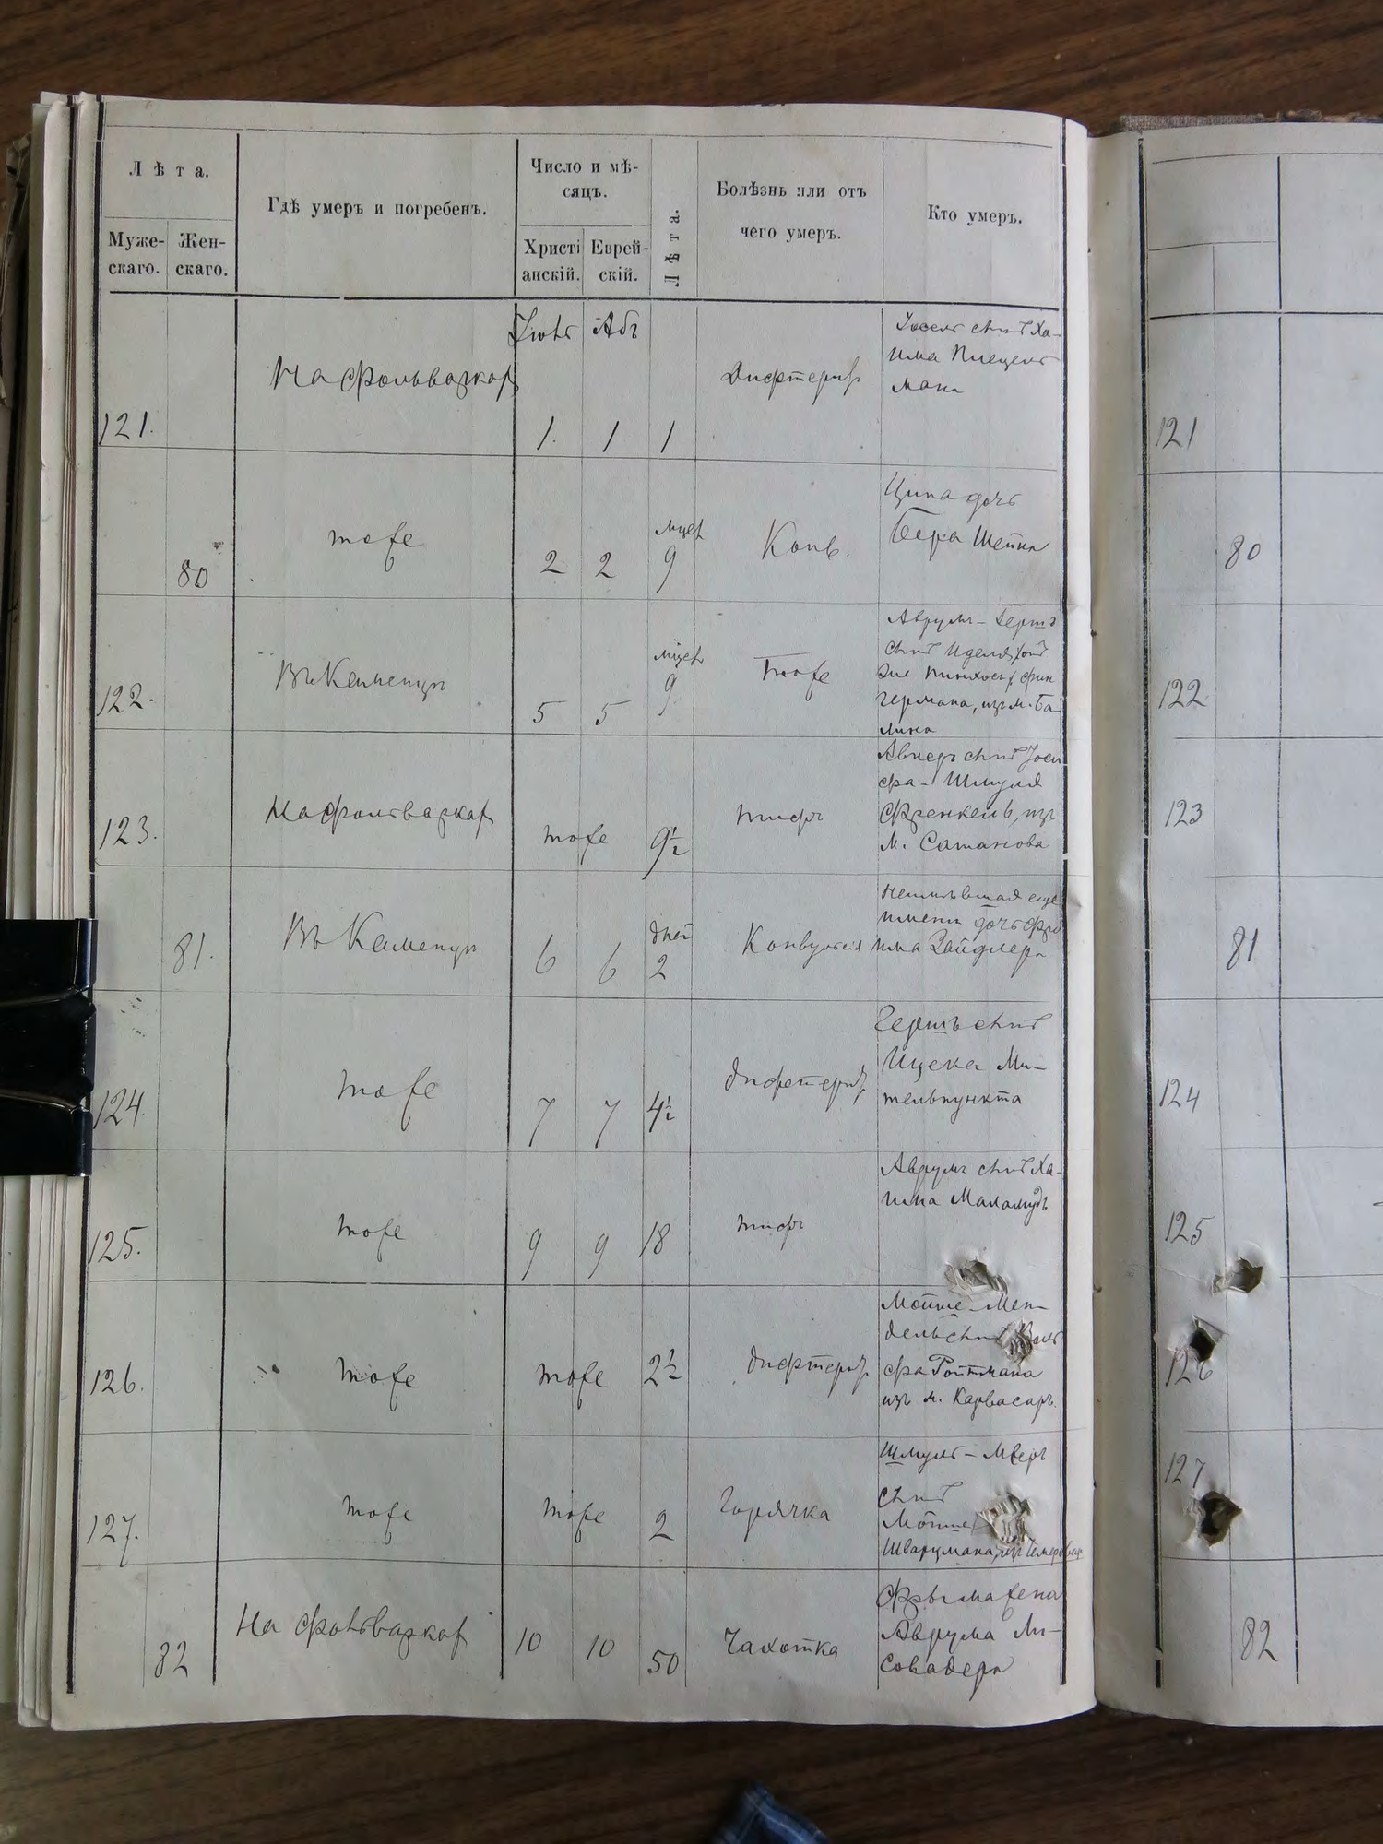 Лѣта.
Муже-
скаго.
Жен-
скаго.
Гдѣ умеръ и погребенъ.
Число и мѣ-
сяцъ.
Христі
анскій.
Еврей-
скій.
Лѣта.
Болѣзнь или отъ
чего умеръ.
Кто умеръ.
Абъ
121.
На фольваркахъ
1. 1 1
Дифтеритъ
сынъ Ха-
има
ман
80
тоже
2 2
мцев
9
Ципа дочь
Бера Шейна
122.
5 5
мцев
9
Тоже
Аврумъ-Герша
сынъ
Пинхоса Фин
германа, изъ м. Ба
лина
123.
На фольваркахъ
тоже
9 1/2
тифъ
сынъ Іоси
фа-Шмуля
Френкель, изъ
м. Сатанова
81.
Въ Каменцѣ
6 6
дней
2
неимѣвшая еще
имени дочь Фро
има Зайдлера
124
тоже
7 7 4 1/2
дифтеритъ
Гершъ сынъ
Ицека Ми-
тельпункта
125.
тоже
9 9 18
тифъ
Аврумъ сынъ Ха-
има Маламудъ
126.
тоже
тоже
2 1/2
дифтеритъ
Мошше-Мен-
дель сынъ Воль
фа Ройтмана
изъ м. Карвасаръ
127.
тоже
тоже
2
Горячка
Шмуль-Мееръ
сынъ
Мошше
Шварцмана, изъ
82
На фольваркахъ
10 10 50
Чахотка
Фрыма жена
Аврума Ли-
совадера
121
80
122
123
81
124
125
126
127
82